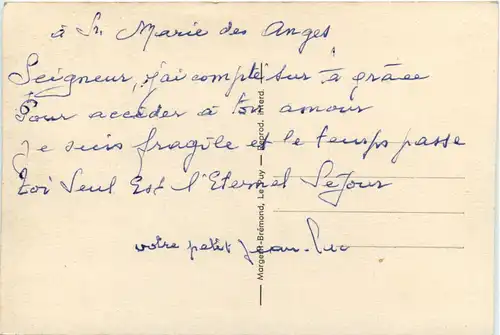 à Sr. Marie des Anges
Seigneur, j'ai compté sur ta grâce
Pour accéder à ton amour
je suis fragile et le temps passe
Toi Seul Est l'Eternel Séjour
votre petit Jean-Luc
Margerit-Brémond, Le Puy — Reprod. interd.